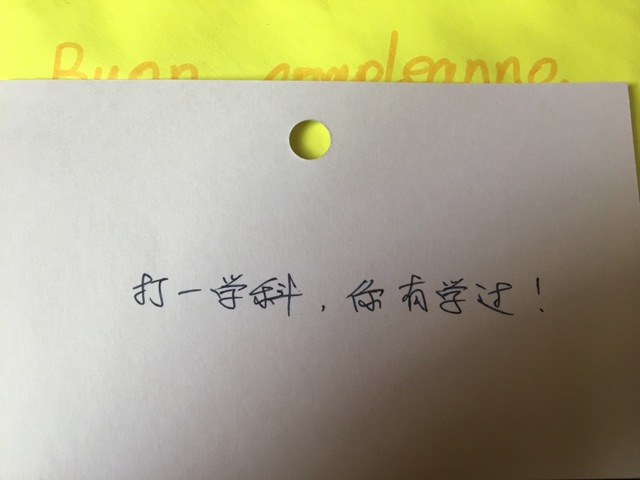 Buon compleanno
打一学科，你有学过！